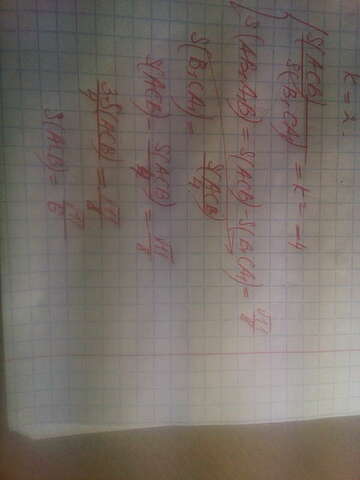 K = 2.
S(ACB) / S(B₁CA₁) = k² = 4
S(ABA₁B₁) = S(ACB) - S(B₁CA₁) = √11 / 8
S(B₁CA₁) = S(ACB) / 4
S(ACB) - S(ACB) / 4 = √11 / 8
3·S(ACB) / 4 = √11 / 8
S(ACB) = √11 / 6